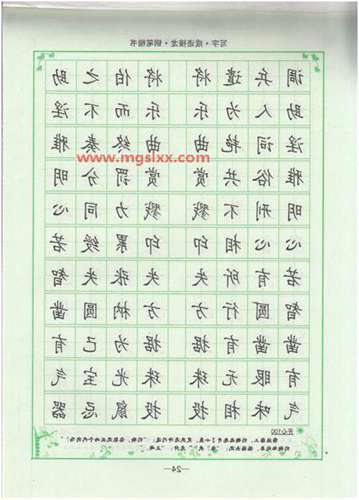 写字·成语接龙·钢笔楷书
调兵遣将将伯之助
助人为乐乐而不淫
淫词艳曲曲终奏雅
www.mgslxx.com
雅俗共赏赏罚分明
明刑不戮戮力同心
心心相印印累绶若
若有所失失张失智
智圆行方方枘圆凿
凿凿有据据为己有
有眼无珠珠光宝气
气味相投投鼠忌器
开心100
—24—